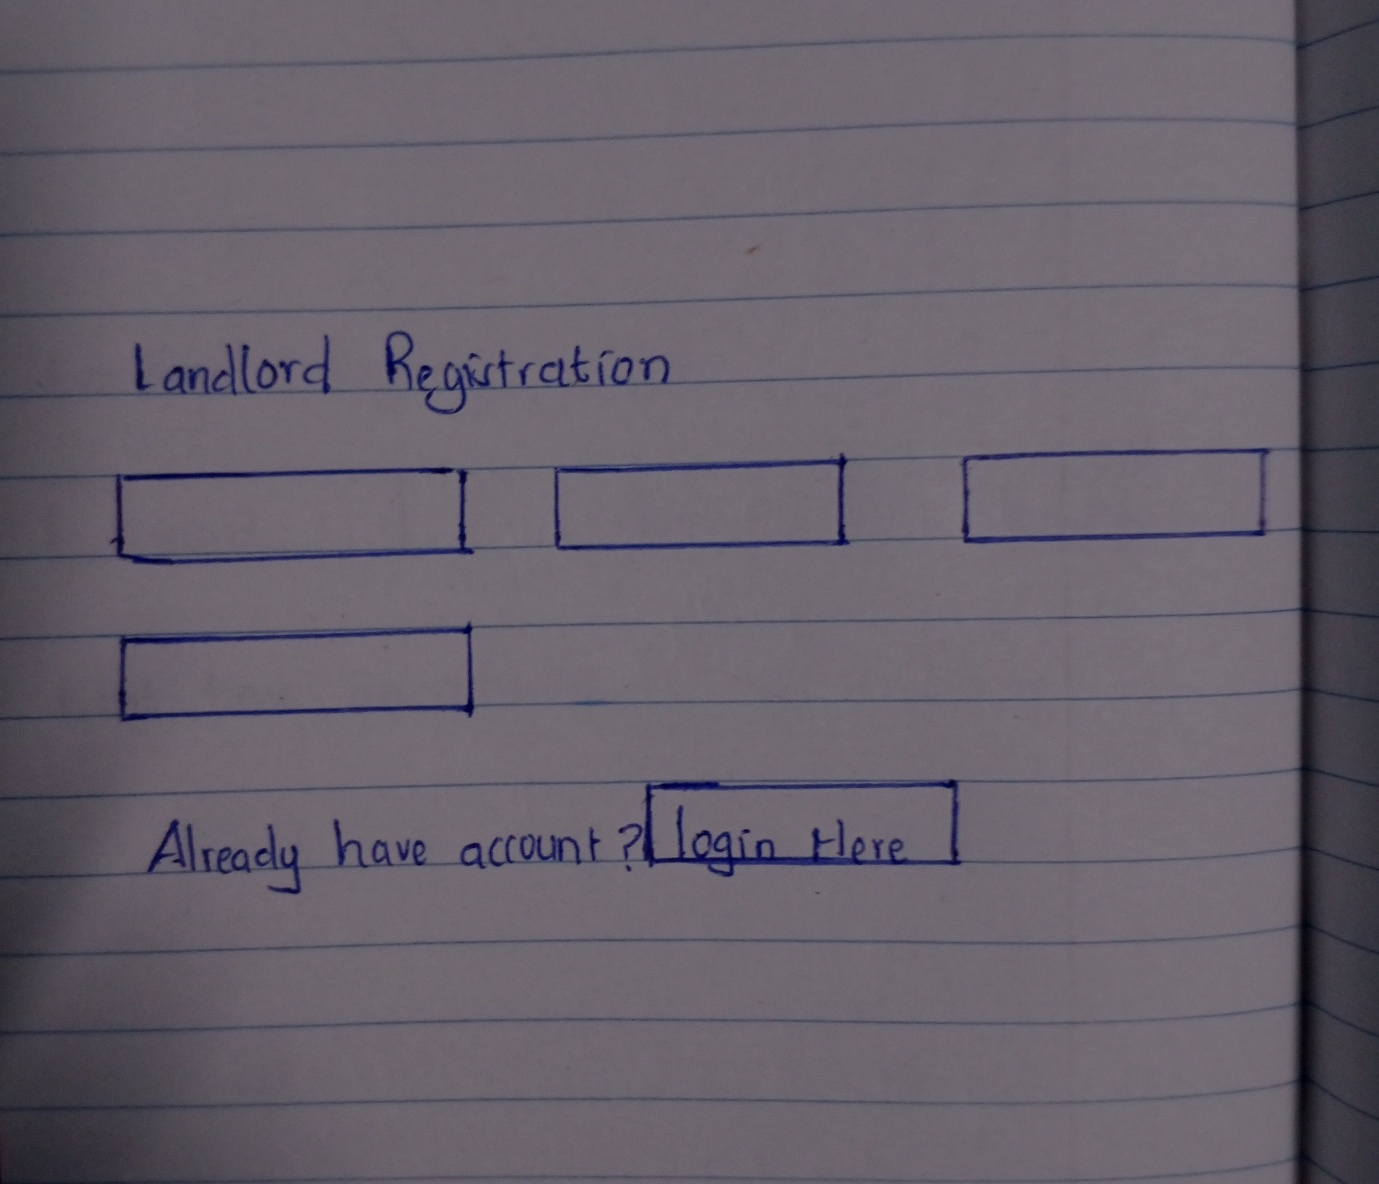 Landlord Registration
Already have account? login Here